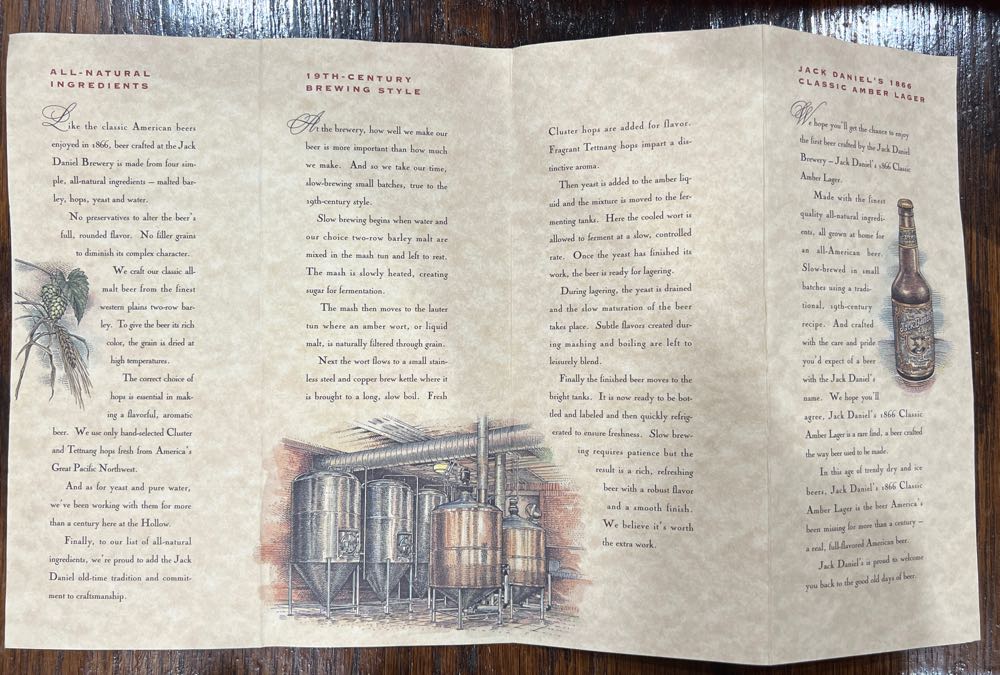 ALL-NATURAL
INGREDIENTS
Like the classic American beers
enjoyed in 1866, beer crafted at the Jack
Daniel Brewery is made from four sim-
ple, all-natural ingredients – malted bar-
ley, hops, yeast and water.
No preservatives to alter the beer's
full, rounded flavor. No filler grains
to diminish its complex character.
We craft our classic all-
malt beer from the finest
western plains two-row bar-
ley. To give the beer its rich
color, the grain is dried at
high temperatures.
The correct choice of
hops is essential in mak-
ing a flavorful, aromatic
beer. We use only hand-selected Cluster
and Tettnang hops fresh from America's
Great Pacific Northwest.
And as for yeast and pure water,
we've been working with them for more
than a century here at the Hollow.
Finally, to our list of all-natural
ingredients, we're proud to add the Jack
Daniel old-time tradition and commit-
ment to craftsmanship.
19TH-CENTURY
BREWING STYLE
At the brewery, how well we make our
beer is more important than how much
we make. And so we take our time,
slow-brewing small batches, true to the
19th-century style.
Slow brewing begins when water and
our choice two-row barley malt are
mixed in the mash tun and left to rest.
The mash is slowly heated, creating
sugar for fermentation.
The mash then moves to the lauter
tun where an amber wort, or liquid
malt, is naturally filtered through grain.
Next the wort flows to a small stain-
less steel and copper brew kettle where it
is brought to a long, slow boil. Fresh
Cluster hops are added for flavor.
Fragrant Tettnang hops impart a dis-
tinctive aroma.
Then yeast is added to the amber liq-
uid and the mixture is moved to the fer-
menting tanks. Here the cooled wort is
allowed to ferment at a slow, controlled
rate. Once the yeast has finished its
work, the beer is ready for lagering.
During lagering, the yeast is drained
and the slow maturation of the beer
takes place. Subtle flavors created dur-
ing mashing and boiling are left to
leisurely blend.
Finally the finished beer moves to the
bright tanks. It is now ready to be bot-
tled and labeled and then quickly refrig-
erated to ensure freshness. Slow brew-
ing requires patience but the
result is a rich, refreshing
beer with a robust flavor
and a smooth finish.
We believe it's worth
the extra work.
JACK DANIEL'S 1866
CLASSIC AMBER LAGER
We hope you'll get the chance to enjoy
the first beer crafted by the Jack Daniel
Brewery – Jack Daniel's 1866 Classic
Amber Lager.
Made with the finest
quality all-natural ingredi-
ents, all grown at home for
an all-American beer.
Slow-brewed in small
batches using a tradi-
tional, 19th-century
recipe. And crafted
with the care and pride
you'd expect of a beer
with the Jack Daniel's
name. We hope you'll
agree, Jack Daniel's 1866 Classic
Amber Lager is a rare find, a beer crafted
the way beer used to be made.
In this age of trendy dry and ice
beers, Jack Daniel's 1866 Classic
Amber Lager is the beer America's
been missing for more than a century –
a real, full-flavored American beer.
Jack Daniel's is proud to welcome
you back to the good old days of beer.